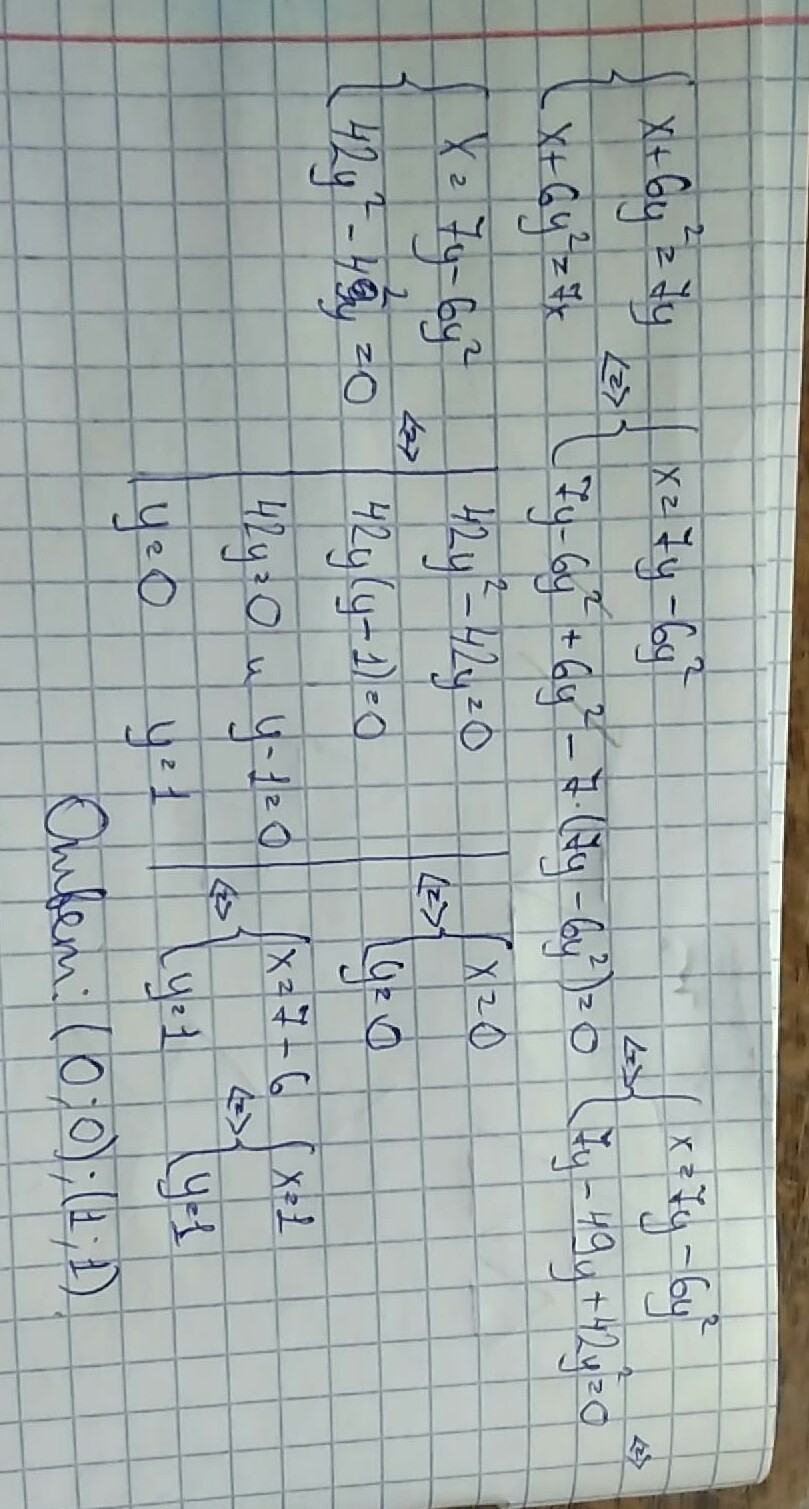 { x + 6y² = 7y <=> { x = 7y - 6y² <=> { x = 7y - 6y²
{ x + 6y² = 7x { 7y - 6y² + 6y² - 7·(7y - 6y²) = 0 { 7y - 49y + 42y² = 0 <=>
{ x = 7y - 6y² <=>
{ 42y² - y = 0
42y² - 42y = 0
42y(y - 1) = 0
42y = 0 и y - 1 = 0
y = 0 y = 1
<=> { x = 0
{ y = 0
<=> { x = 7 - 6 <=> { x = 1
{ y = 1 { y = 1
Ответ: (0; 0); (1; 1).